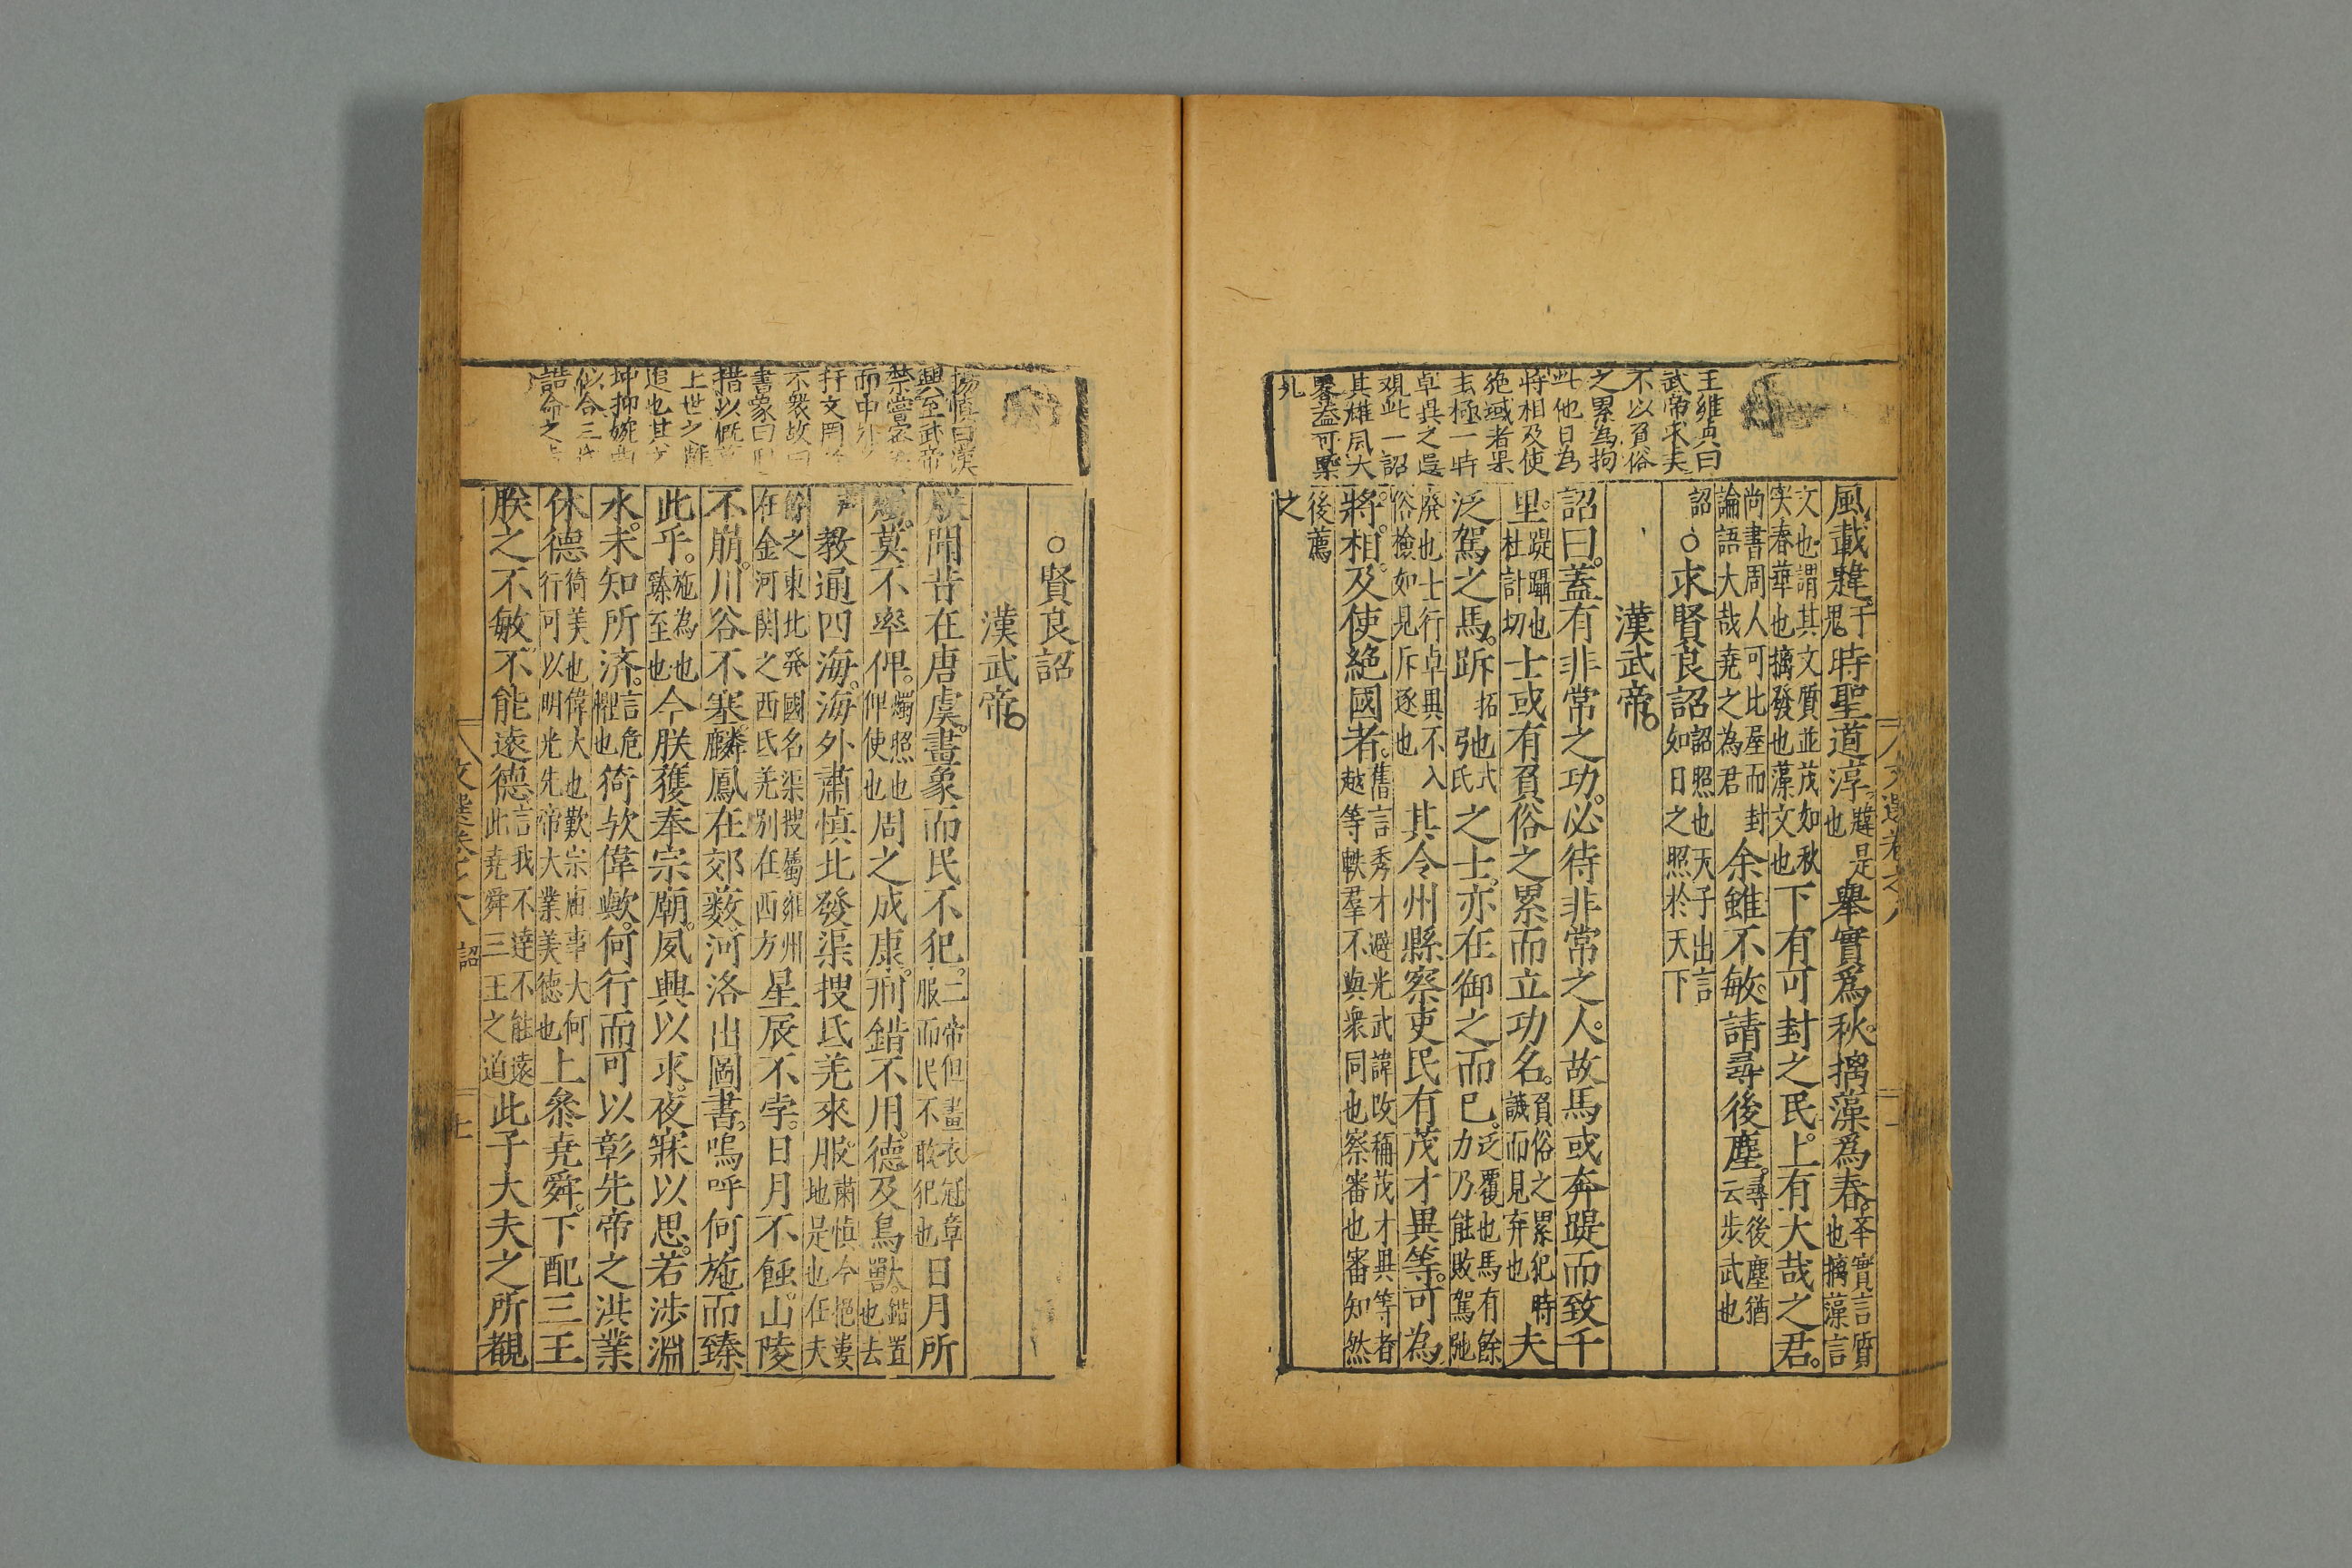 王維貞曰
武帝求夫
不以負俗
之累為拘
此他日為
將相及使
絶域者果
卓異之選
觀此一詔
其雄風大
畧益可槩
風載韙于鬼時聖道淳韙是也舉實爲秋摛藻爲春
文也謂其文質並茂如秋實春華也摛發也藻文也下有可封之民上有大哉之君
尚書周人可比屋而封論語大哉堯之為君余雖不敏請尋後塵尋後塵猶云步武也
詔○求賢良詔詔照也天子出言如日之照於天下
漢武帝
詔曰蓋有非常之功必待非常之人故馬或奔踶而致千
里踶蹋也杜計切士或有負俗之累而立功名負俗之累犯時譏而見弃也夫
泛駕之馬跅拓弛式氏之士亦在御之而已泛覆也馬有餘力乃能敗駕弛
廢也士行卓異不入俗檢如見斥逐也其令州縣察吏民有茂才異等可為
將相及使絶國者舊言秀才避光武諱改稱茂才異等者越等軼羣不與衆同也察審也審知然
後薦之
○賢良詔
漢武帝
朕聞昔在唐虞畫象而民不犯二帝但畫衣冠章服而民不敢犯也日月所
燭莫不率俾燭照也俾使也周之成康刑錯不用德及鳥獸錯置也去
教通四海海外肅慎北發渠搜氐羌來服肅慎今挹婁地是也在夫
餘之東北発國名渠搜屬雍州在金河関之西氐羌别在西方星辰不孛日月不蝕山陵
不崩川谷不塞麟鳳在郊藪河洛出圖書嗚呼何施而臻
此乎施為也臻至也今朕獲奉宗廟夙興以求夜寐以思若涉淵
水未知所済言危懼也猗歟偉歟何行而可以彰先帝之洪業
休德猗美也偉大也歎宗庙事大何行可以明光先帝大業美德也上叅堯舜下配三王
朕之不敏不能遠德言我不達不能遠此堯舜三王之道此子大夫之所覩
文選卷之八 詔